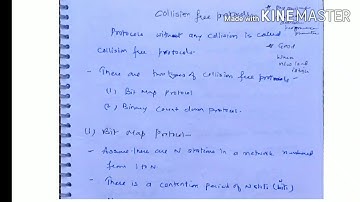 Collision free protocols
Made with KINEMASTER
Protocols without any collision is called
collision free protocols.
* Good
when
- There are two types of collision free protocols -
(1) Bit Map Protocol
(2) Binary Count down Protocol.
(1) Bit Map Protocol -
- Assume there are N stations in a network numbered
from 1 to N.
- There is a contention period of N slots (bits)